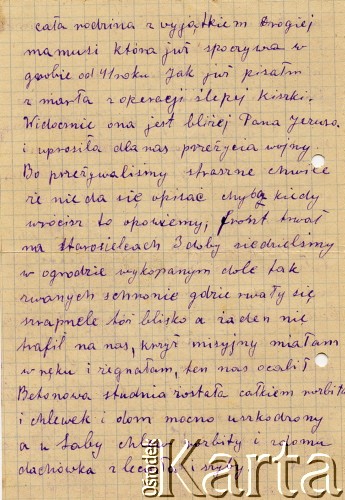 cała rodzina z wyjątkiem Drogiej
mamusi która już spoczywa w
grobie od 41 roku. Jak już pisałm
zmarła z operacji ślepej Kiszki.
Widocznie ona jest bliżej Pana Jezusa.
i uprosiła dla nas przeżycia wojny.
Bo przeżywaliśmy straszne chwile
że nie da się opisać chyba kiedy
wrócisz to opowiemy, front trwał
na Starosielcach 3 doby siedzieliśmy
w ogrodzie wykopanym dole tak
zwanych schronie gdzie rwały się
szrapnele toś blisko a żaden nie
trafił na nas, krzyż misyjny miałam
w ręku i żegnałam, ten nas ocalił
Betonowa studnia została całkiem rozbita
i chlewek i dom mocno uszkodzony
a u Łaby chlew rozbity i z domu
dachówka zleciała i szyby.
Ośrodek
Karta